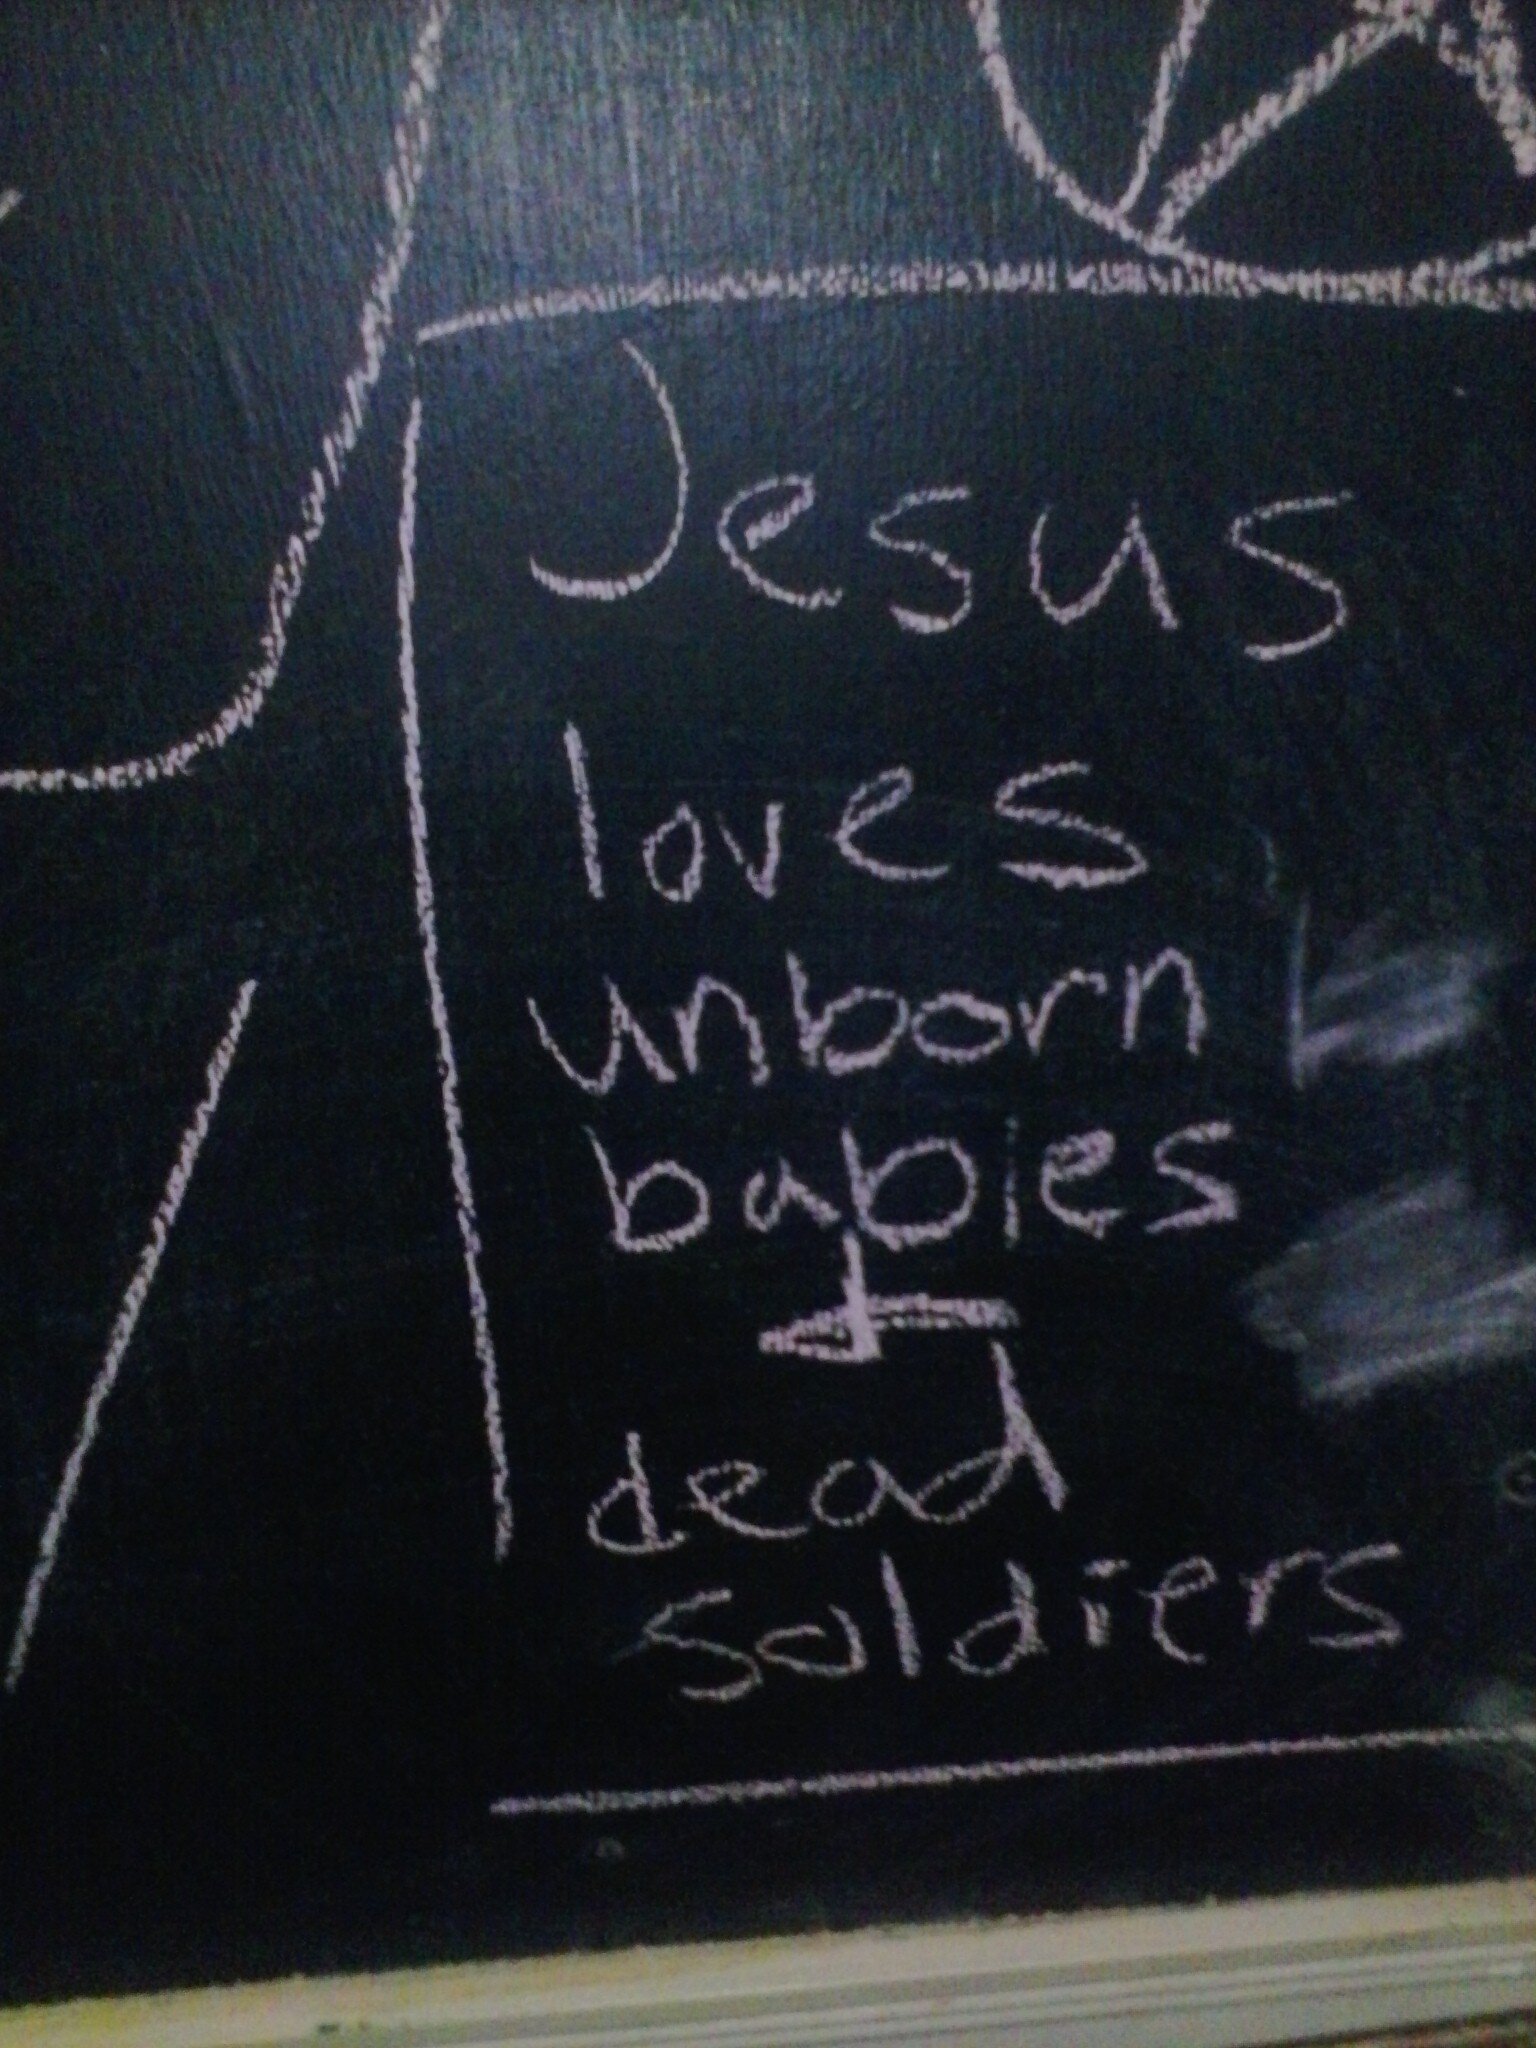 Jesus
loves
unborn
babies
&
dead
soldiers